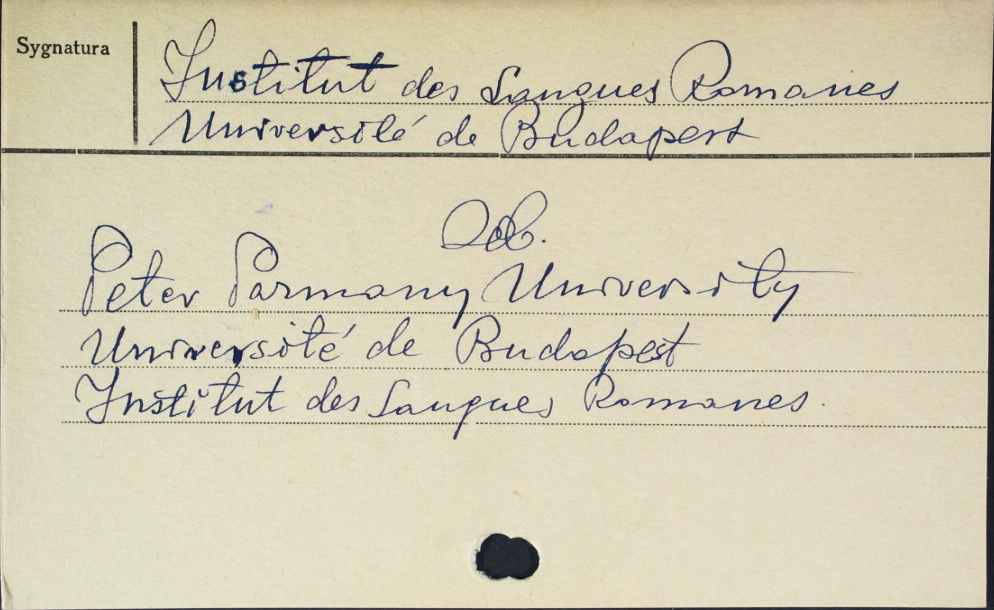 Sygnatura
Institut des Langues Romanes
Université de Budapest
Ob.
Peter Parmany University
Université de Budapest
Institut des Langues Romanes.